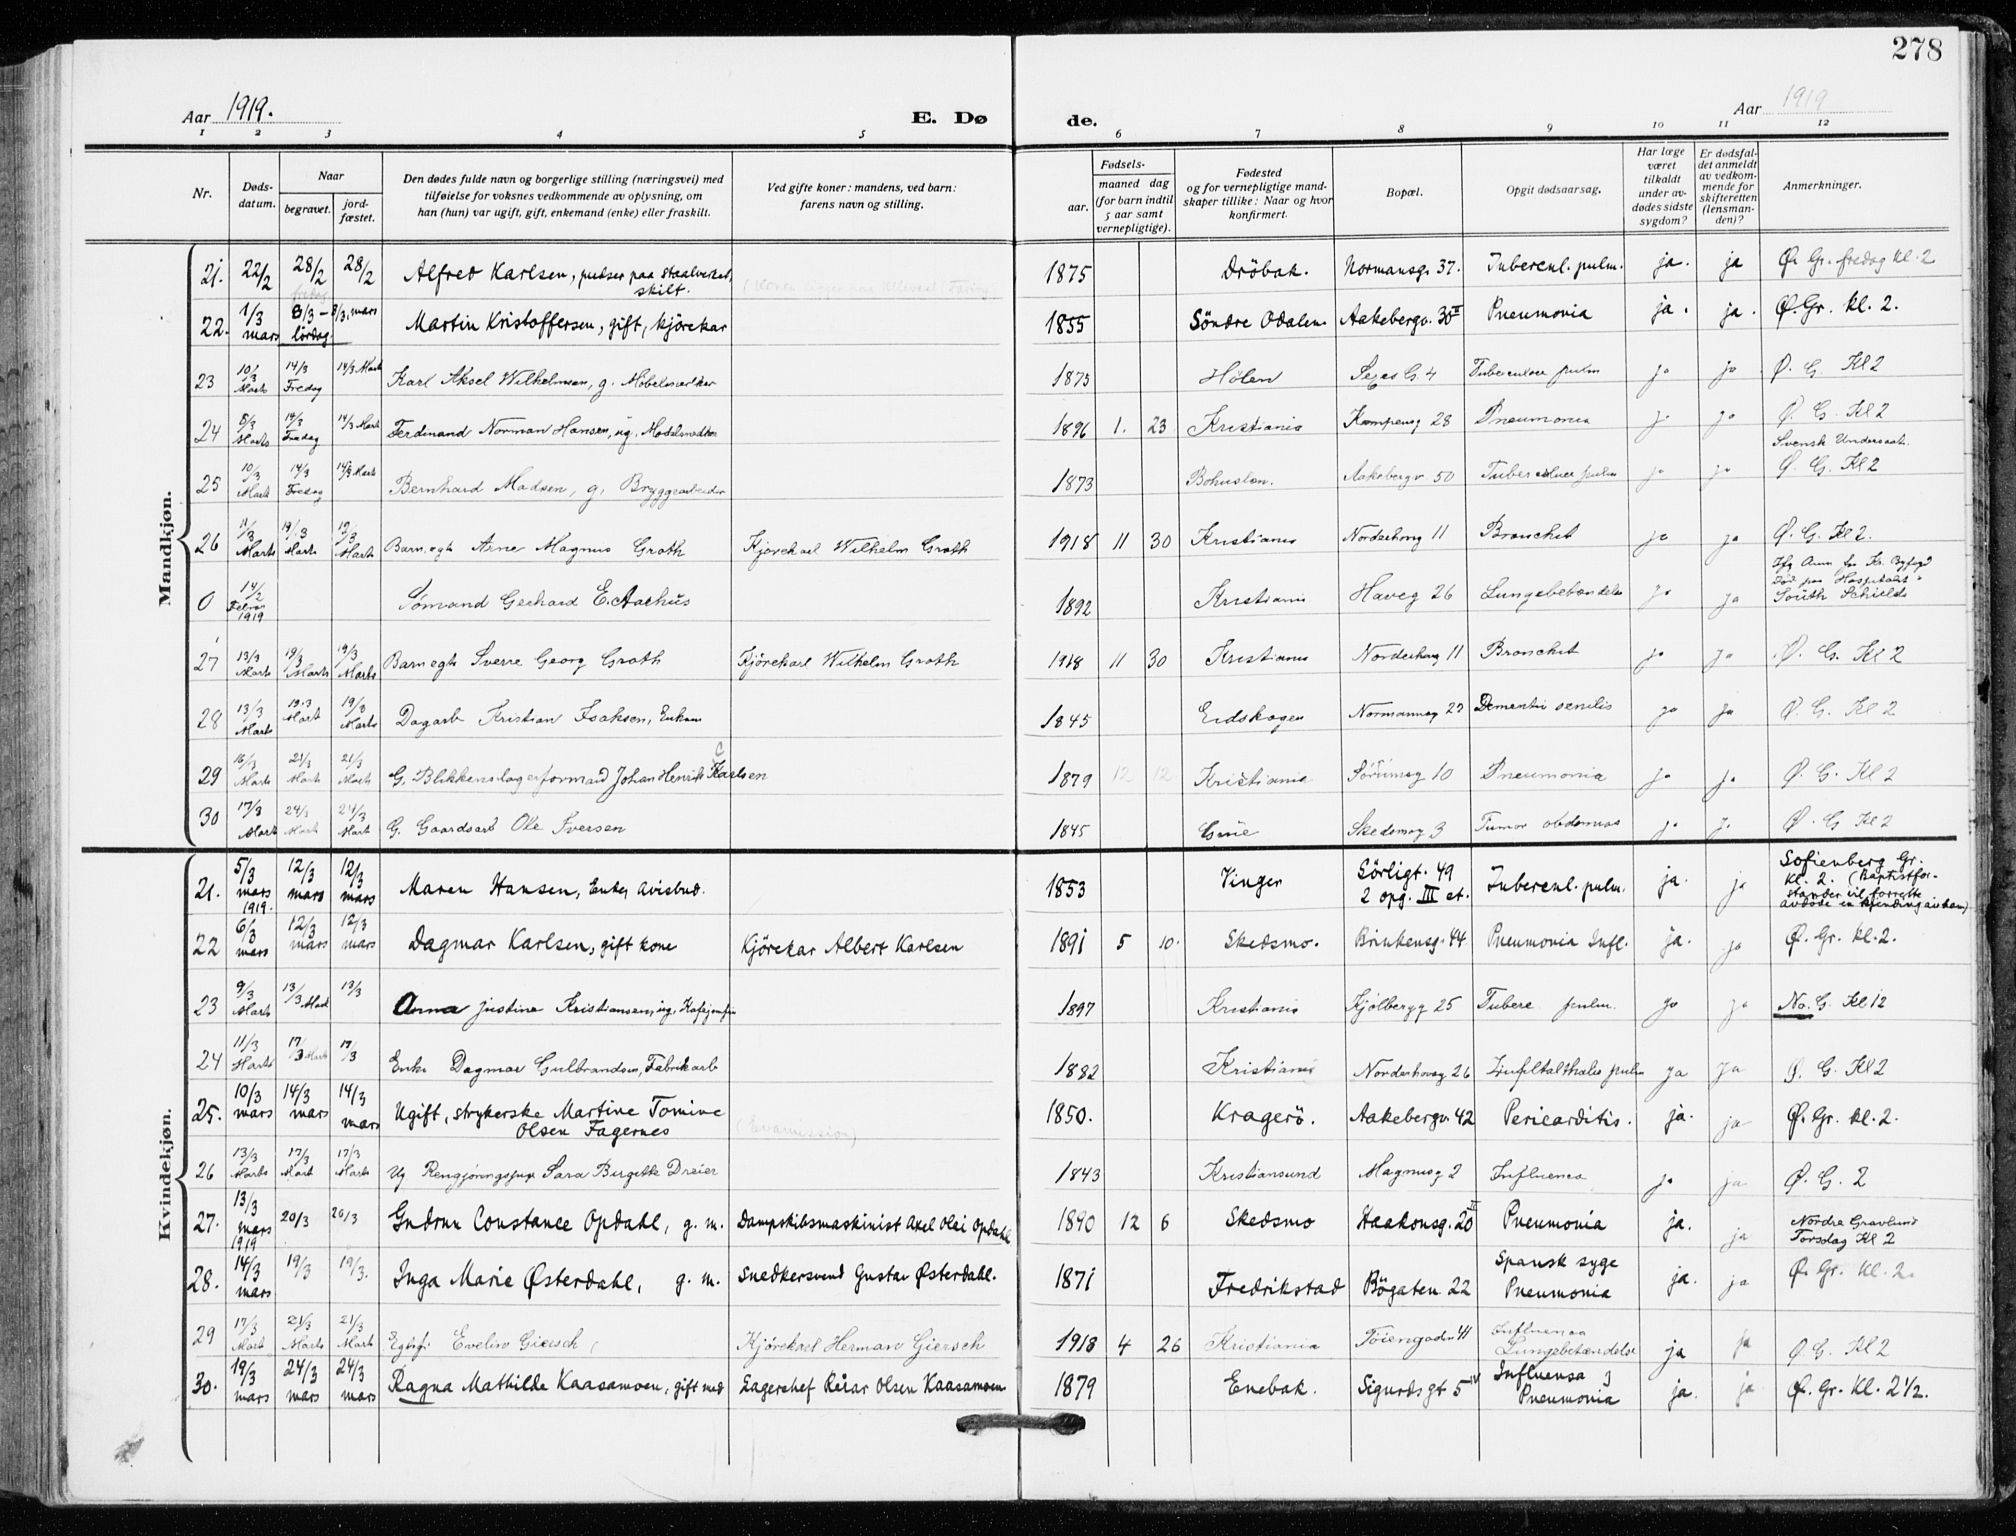 278
Aar 1919.
E. Dø de.
Aar 1919
1 2 3 4 5 6 7 8 9 10 11 12
Nr.
Døds-datum.
Naar
begravet.
jord-fæstet.
Den dødes fulde navn og borgerlige stilling (næringsvei) med
tilføielse for voksnes vedkommende av oplysning, om
han (hun) var ugift, gift, enkemand (enke) eller fraskilt.
Ved gifte koner: mandens, ved barn:
farens navn og stilling.
Fødsels-
aar.
maaned dag
(for barn indtil
5 aar samt
vernepligtige).
Fødested
og for vernepligtige mand-
skaper tillike: Naar og hvor
konfirmert.
Bopæl.
Opgit dødsaarsag.
Har læge
været
tilkaldt
under av-
dødes sidste
sygdom?
Er dødsfal-
det anmeldt
av vedkom-
mende for
skifteretten
(lensman-
den)?
Anmerkninger.
Mandkjøn.
21. 22/2 28/2 fredag 28/2 Alfred Karlsen, pudser paa staalverket, skilt. 1875 Dröbak. Normansg. 37. Tubercul. pulm. ja. ja Ø. Gr. fredag kl. 2
22. 1/3 mars 8/3 - lördag. 8/3, mars Martin Kristoffersen, gift, kjörekar 1855 Söndre Odalen. Aakebergv. 30 II Pneumonia ja. ja. Ø. Gr. kl. 2.
23 10/3 Marts 14/3 Fredag 14/3 Mart Karl Aksel Wilhelmsen, g. Möbelsnedker 1875 Hölen Seges G. 4 Tuberculose pulm ja ja Ø. G. Kl 2
24 5/3 Marts 14/3 Fredag 14/3 Mart Ferdinand Norman Hansen, ug. Modelsnedker 1896 1. 23 Kristiania Kampeng 28 Pneumonia ja ja Ø. G. Kl 2
25 10/3 Mart 14/3 Fredag 14/3 Mart Bernhard Madsen, g. Bryggearbeider 1873 Bohuslen. Aakebergv 50 Tuberculose pulm ja ja Svensk Undersaat. Ø. G. Kl 2
26 11/3 Marts 19/3 Marts 19/3 Marts Barn, egte Arne Magnus Groth Kjörekarl Wilhelm Groth 1918 11 30 Kristiania Norderhovg 11 Bronchit ja ja Ø. G. Kl 2.
0 14/2 Februar 1919 Sömand Gerhard E. Aarhus 1892 Kristiania Haveg 26 Lungebetændelse ja ja Ifg Anm fra Kr. Byfogd Död paa Hospitalet i South Schields
27 13/3 Marts 19/3 Marts 19/3 Marts Barn egte Sverre Georg Groth Kjörekarl Wilhelm Groth 1918 11 30 Kristiania Norderhovg 11 Bronchit ja ja Ø. G. Kl 2
28 13/3 Mart 19.3 Mart 19/3 Marts Dagarb Kristian Isaksen, Enkem 1845 Eidskogen Normannsg 27 Dementia senilis ja ja Ø. G. Kl 2
29 16/3 Marts 21/3 Mart 21/3 Mart G. Blikkenslagerformand Johan Henrik Karlsen 1879 12 12 Kristiania Sörumsg 10 Pneumonia ja ja Ø. G. Kl 2
30 17/3 Mart 24/3 Mart 24/3 Mart G. Gaardsarb Ole Iversen 1845 Grue Skedsmog 3 Tumor abdomus ja ja Ø. G Kl 2
Kvindekjøn.
21. 5/3 mars 1919. 12/3 mars 12/3 mars Maren Hansen, Enke, Avisbud. 1853 Vinger Sörligt. 49 2 opg. III et. Tubercul. pulm. ja. ja Sofienberg Gr. kl. 2. (Baptistfor-stander vil forrette avdöde en kjending av ham)
22 6/3 mars 12/3 mars 12/3 mars Dagmar Karlsen, gift kone Kjörekar Albert Karlsen 1891 5 10. Skedsmo. Brinkensg. 44 Pneumonia Infl. ja. ja Ø. Gr. kl. 2.
23 9/3 Marts 13/3 Mart 13/3 Anna Justine Kristiansen, ug. Kafejomfru 1897 Kristiania Kjölbergg 25 Tuberc pulm. ja ja No. G. Kl 12
24 11/3 Marts 17/3 Mart 17/3 Enke Dagmar Gulbrandsen, Fabrikarb 1882 Kristiania Norderhovsg 26 pulm ja ja Ø. G. Kl 2
25. 10/3 mars 14/3 mars 14/3 mars Ugift, strykerske Martine Tomine Olsen Fagernes (Evamission) 1850. Kragerö. Aakebergv. 42 Pericarditis. ja. ja Ø. Gr. kl. 2.
26 13/3 Marts 17/3 Mart 17/3 Marts Ug Rengjøringsjnr Sara Birgitte Dreier 1843 Kristiansund Magnusg 2 Influensa ja ja Ø. G. 2
27. 13/3 mars 1919 20/3 20/3 Gudrun Constance Opdahl, g. m. Dampskibsmaskinist Axel Olai Opdahl 1890 12 6 Skedsmo Haakonsg. 20 II Pneumonia ja. ja Nordre Gravlund Torsdag Kl 2
28. 14/3 mars 19/3 19/3. Inga Marie Østerdahl, g. m. Snedkersvend Gustav Østerdahl. 1871 Fredrikstad Bögaten 22 Spansk syge Pneumonia ja. ja Ø. Gr. kl. 2.
29 17/3 Mart 21/3 Marts 21/3 Marts Egtef. Evelin Giersch Kjörekarl Herman Giersch 1918 4 26 Kristiania Töiengaden 41 Influensa Lungebetændelse ja ja Ø G. Kl 2
30. 19/3 mars 24/3 mars 24/3 mars Ragna Mathilde Kaasamoen, gift med Lagerchef Reiar Olsen Kaasamoen 1879 Enebak. Sigurdsgt 5 IV Influensa, Pneumonia ja. ja Ø. Gr. Kl. 2 1/2.